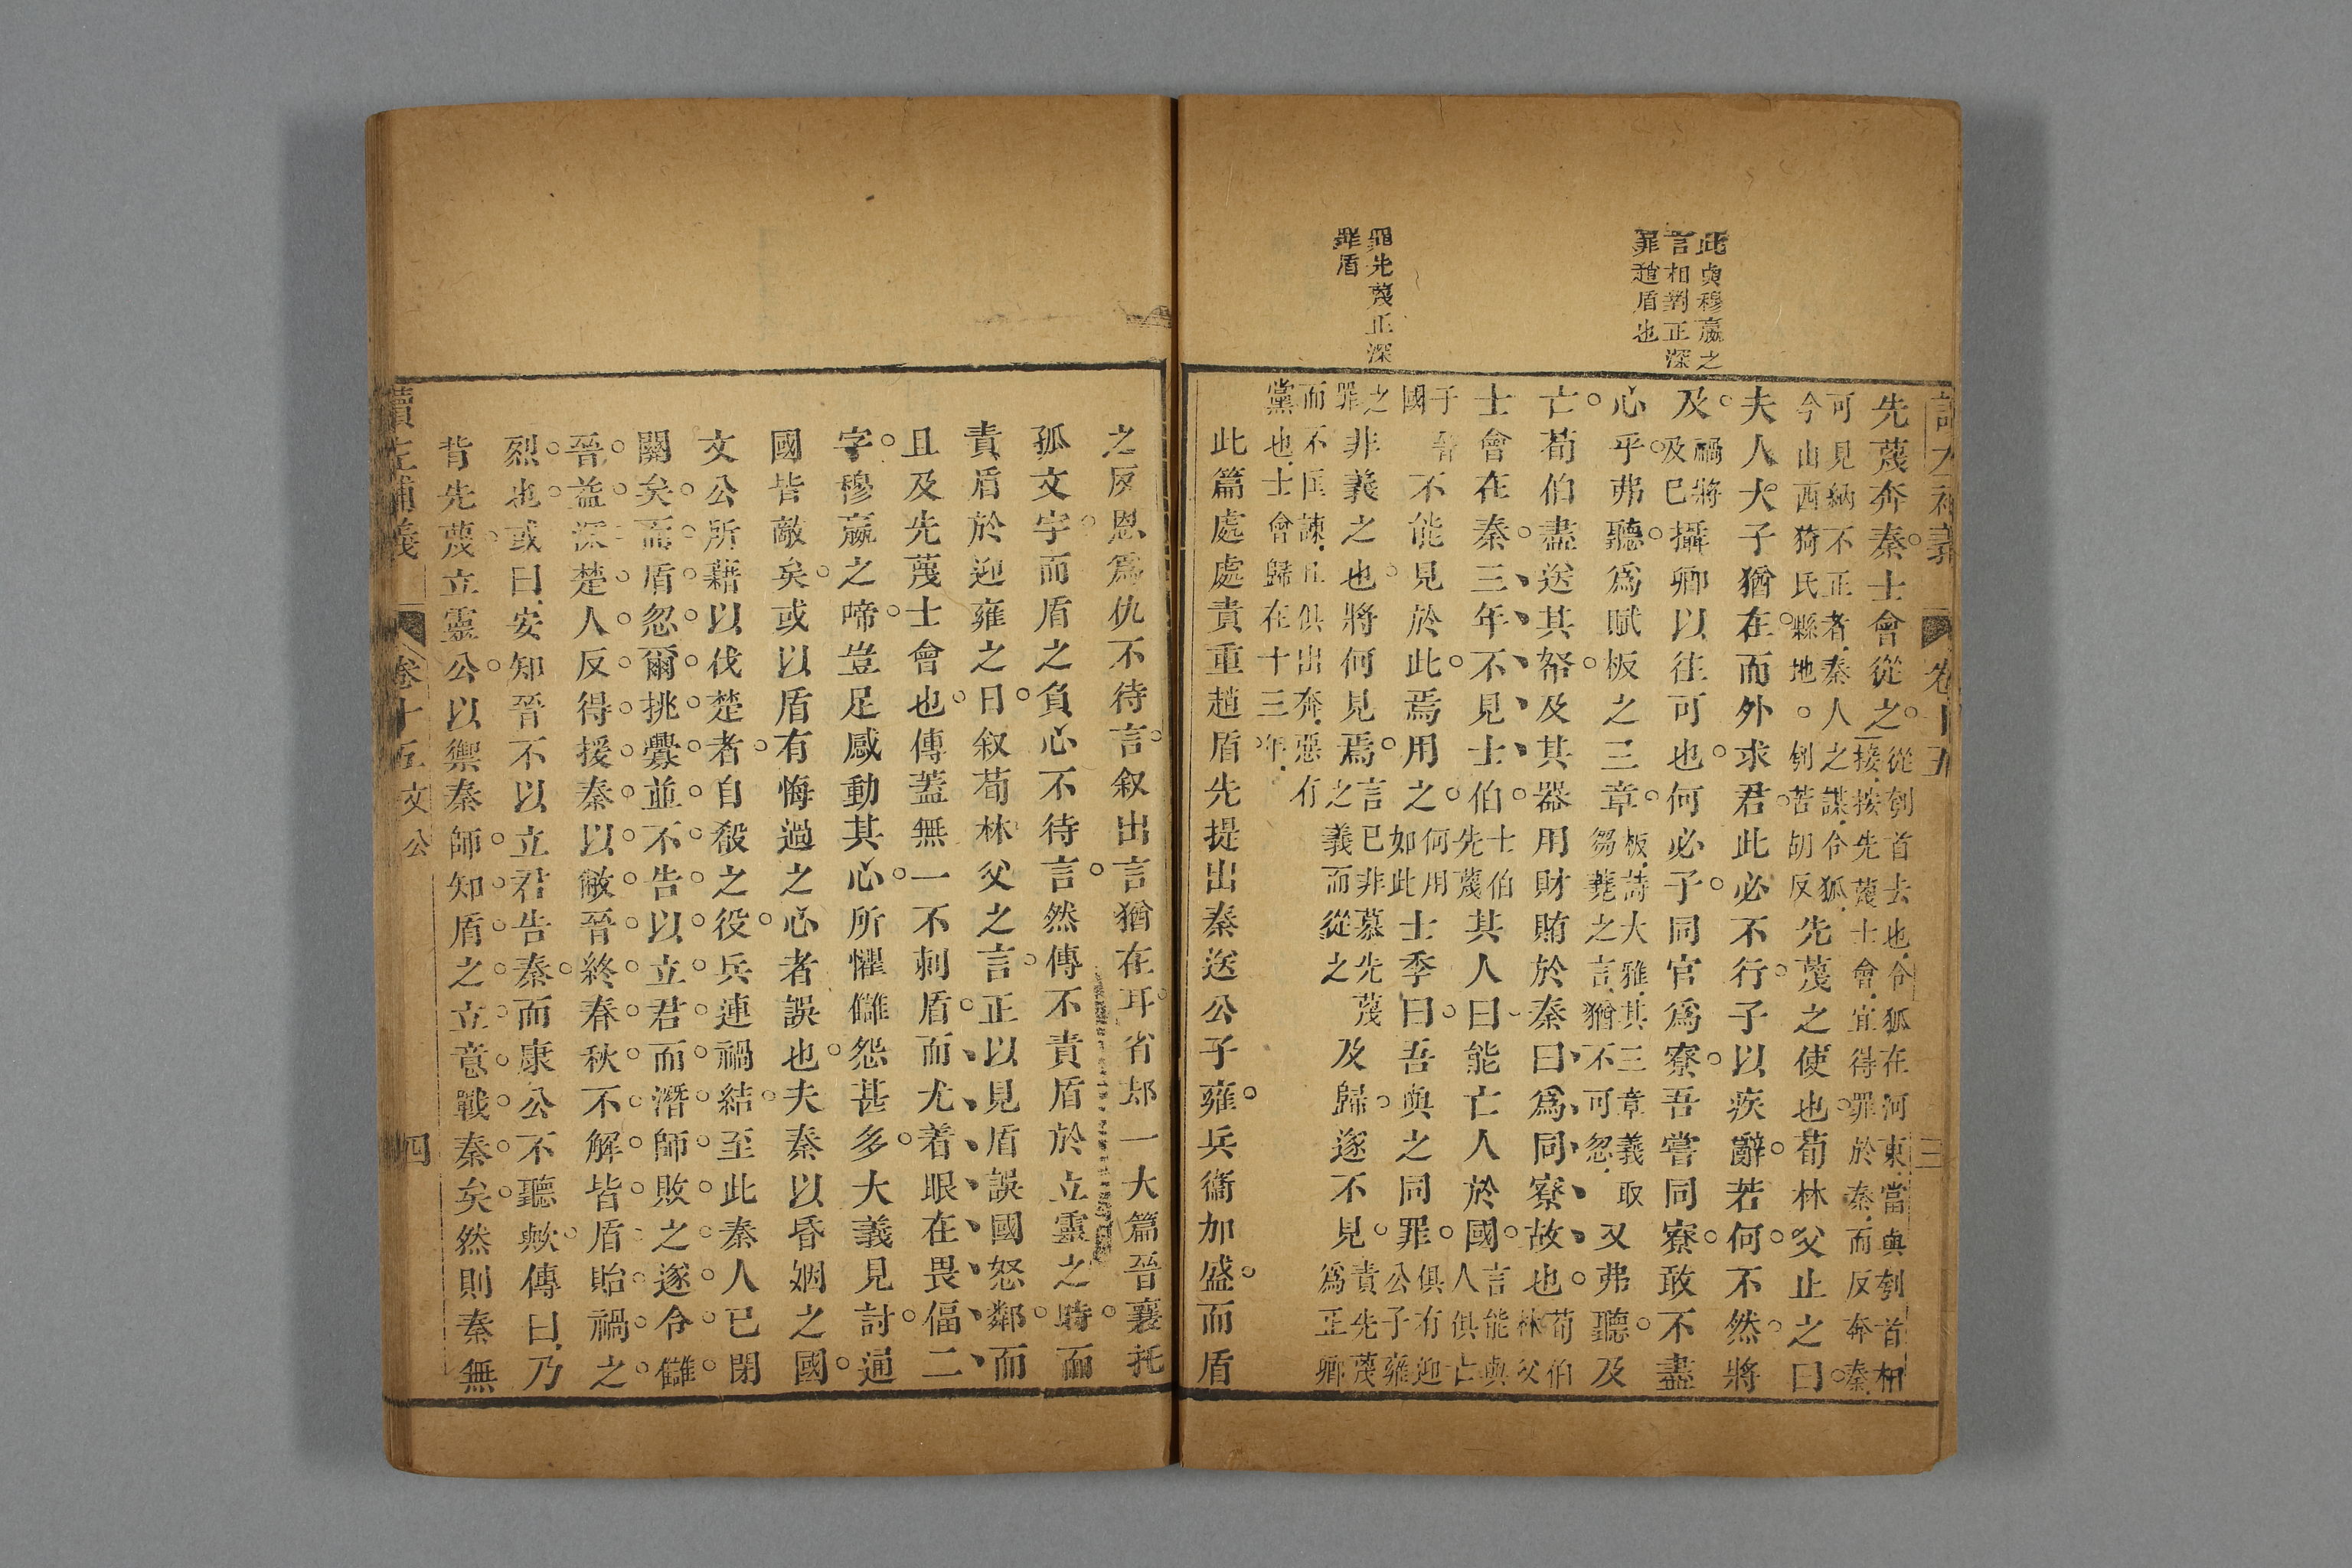 讀左補義　卷十五　三
此與穆嬴之
言相對正深
罪趙盾也
罪先蔑正深
罪盾
先蔑奔秦士會從之從刳首去也令狐在河東當與刳首相接按先蔑士會宜得罪於秦而反奔秦
可見納不正者秦人之謀令狐今山西猗氏縣地刳苦胡反先蔑之使也荀林父止之曰
夫人大子猶在而外求君此必不行子以疾辭若何不然將
及禍將及已攝卿以往可也何必子同官爲寮吾嘗同寮敢不盡
心乎弗聽爲賦板之三章板詩大雅其三章義取芻蕘之言猶不可忽又弗聽及
亡荀伯盡送其帑及其器用財賄於秦曰爲同寮故也荀伯林父
士會在秦三年不見士伯士伯先蔑其人曰能亡人於國言能與人俱亡
子晉國不能見於此焉用之何用如此士季曰吾與之同罪俱有迎公子雍
之罪非義之也將何見焉言已非慕先蔑之義而從之及歸遂不見責先蔑爲正卿
而不匡諫且俱出奔惡有黨也士會歸在十三年
此篇處處責重趙盾先提出秦送公子雍兵衞加盛而盾
之反恩爲仇不待言叙出言猶在耳省却一大篇晉襄托
孤文字而盾之負心不待言然傳不責盾於立靈之時而
責盾於迎雍之日叙荀林父之言正以見盾誤國怒鄰而
且及先蔑士會也傳蓋無一不刺盾而尤着眼在畏偪二
字穆嬴之啼豈足感動其心所懼讎怨甚多大義見討通
國皆敵矣或以盾有悔過之心者誤也夫秦以昏姻之國
文公所藉以伐楚者自殽之役兵連禍結至此秦人已閉
關矣而盾忽爾挑釁並不告以立君而潛師敗之遂令讎
晉益深楚人反得援秦以敵晉終春秋不解皆盾貽禍之
烈也或曰安知晉不以立君告秦而康公不聽歟傳曰乃
背先蔑立靈公以禦秦師知盾之立意戰秦矣然則秦無
讀左補義　卷十五　文公　四